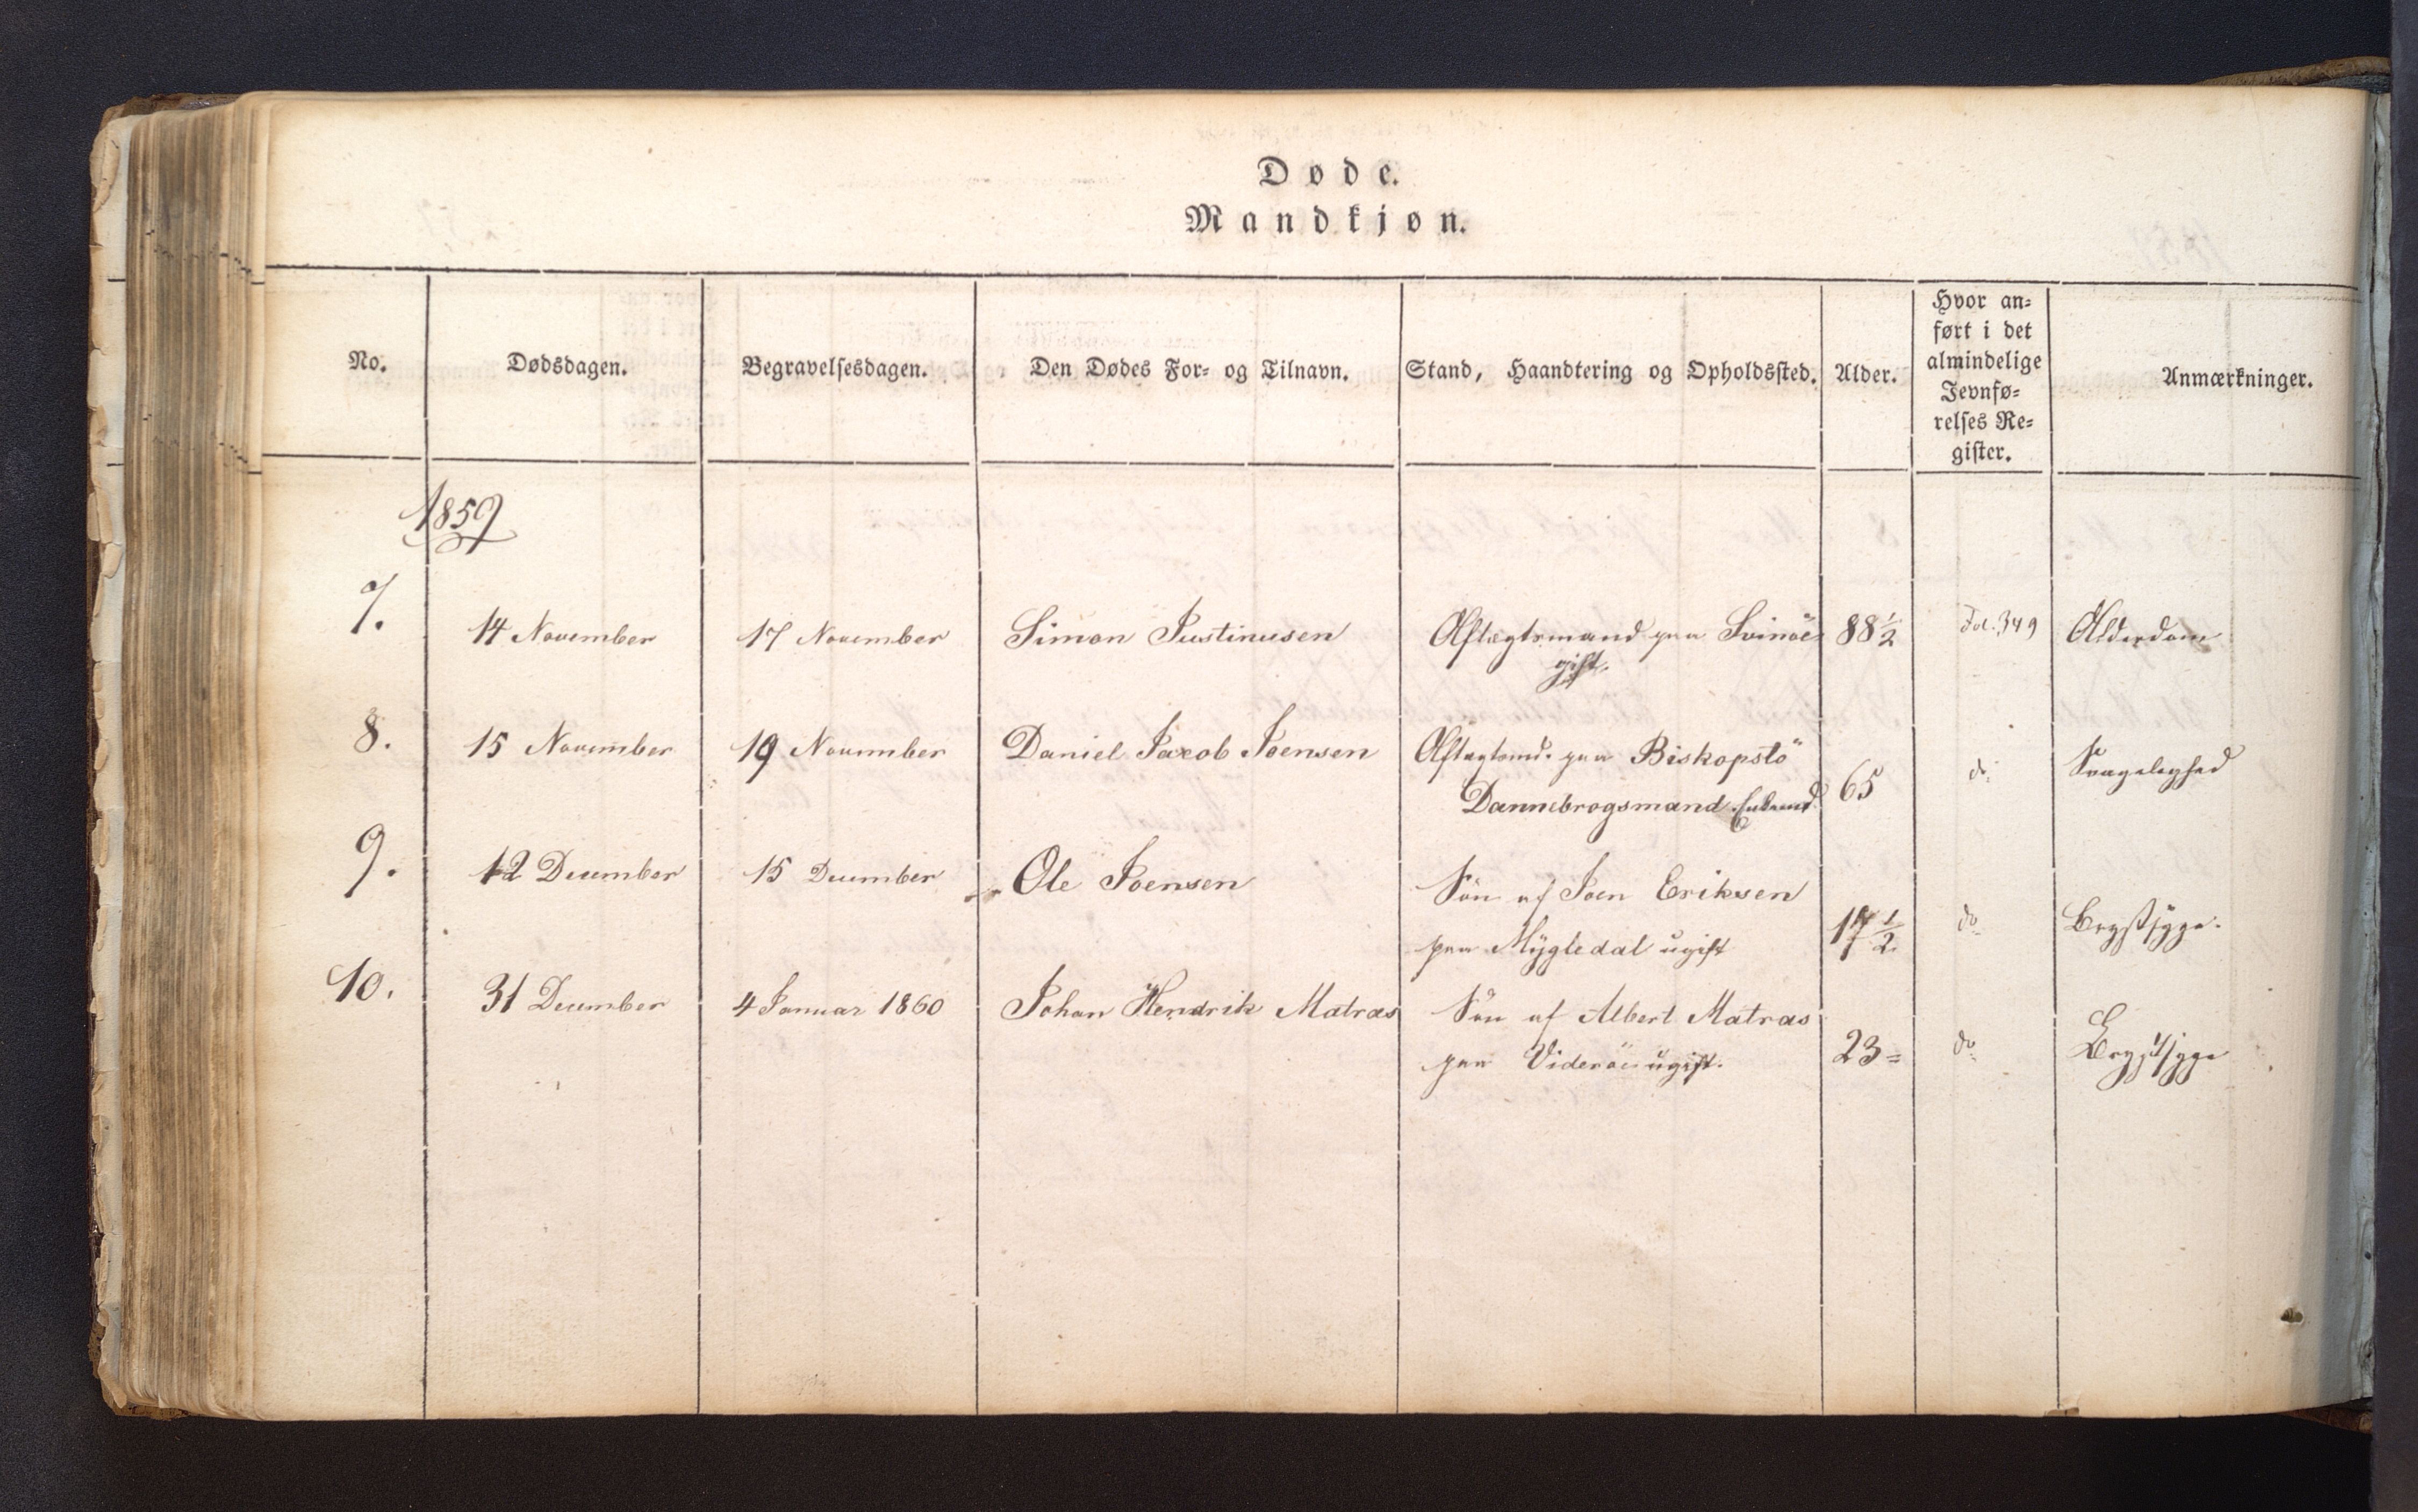 Døde.
Mandkjøn.
No. Dødsdagen. Begravelsesdagen. Den Dødes For- og Tilnavn. Stand, Haandtering og Opholdssted. Alder. Hvor an-
ført i det
almindelige
Jevnfø-
relses Re-
gister. Anmærkninger.
1859
7. 14 November 17 November Simon Justinusen Aftægtsmand paa Svinöe 88 1/2 Fol. 349 Alderdom
gift.
8. 15 November 19 November Daniel Jacob Joensen Aftægtsmd. paa Biskopstö
Dannebrogsmand Enkemd. 65 do Svagelighed
9. 12 December 15 December Ole Joensen Sön af Joen Eriksen
paa Mygledal ugift 17 1/2 do Brystsyge.
10. 31 December 4 Januar 1860 Johan Hendrik Matras Sön af Albert Matras
paa Videröe ugift. 23 = do Brystsyge